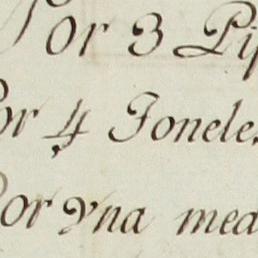 Por 3 Pip
Por 4 Toneles
Por vna med